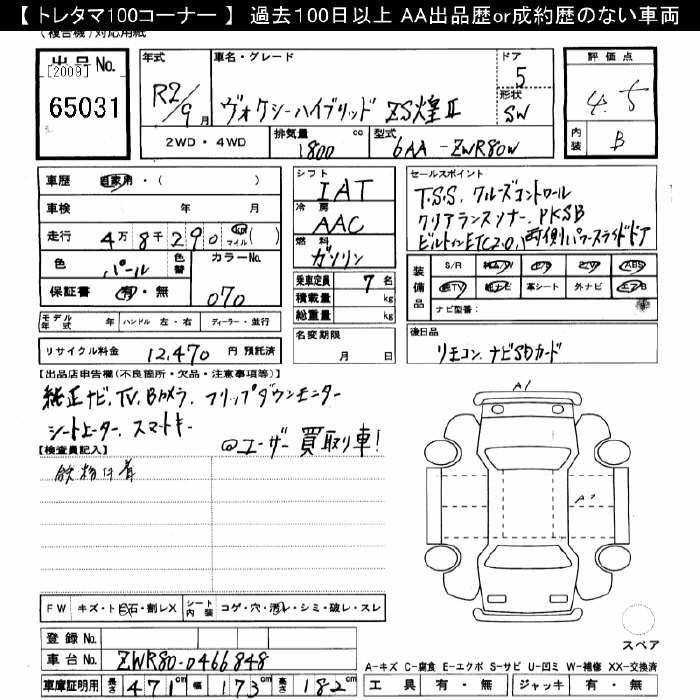 【 トレタマ100コーナー 】 過去100日以上 AA出品歴or成約歴のない車両
(複合機)対応用紙
出品No.
[2009]
65031
年式
R2/9月
車名・グレード
ヴォクシーハイブリッド ZS煌Ⅱ
ドア
5
形状
SW
評価点
4.5
内装 B
2WD・4WD
排気量 1800 cc
型式 6AA-ZWR80W
車歴 自家用・( )
車検 年 月
走行 4万8千290 km マイル ( )
色 パール
色替
カラーNo. 070
保証書 有・無
シフト IAT
冷房 AAC
燃料 ガソリン
乗車定員 7名
積載量 kg
総重量 kg
名変期限
月 日
セールスポイント
T.S.S. クルーズコントロール
クリアランスソナー. PKSB
ビルトインETC2.0. 両側パワースライドドア
装備品 S/R 純A/W P/S P/W ABS
純TV 純ナビ 革シート 外ナビ エアB
ナビ型番:
モデル年式 年 ハンドル 左・右 ディーラー・並行
リサイクル料金 12,470 円 預託済
後日品
リモコン. ナビSDカード
【出品店申告欄(不良箇所・欠品・注意事項等)】
純正ナビ. TV. Bカメラ. フリップダウンモニター
シートヒーター. スマートキー
@ユーザー買取り車!
【検査員記入】
A1
A1
FW キズ・ト石・割レX
シート内装 コゲ・穴・汚レ・シミ・破レ・スレ
登録No.
車台No. ZWR80-0466848
車庫証明用 長さ 471cm 幅 173cm 高さ 182cm
スペア
A-キズ C-腐食 E-エクボ S-サビ U-凹ミ W-補修 XX-交換済
工具 有・無 ジャッキ 有・無